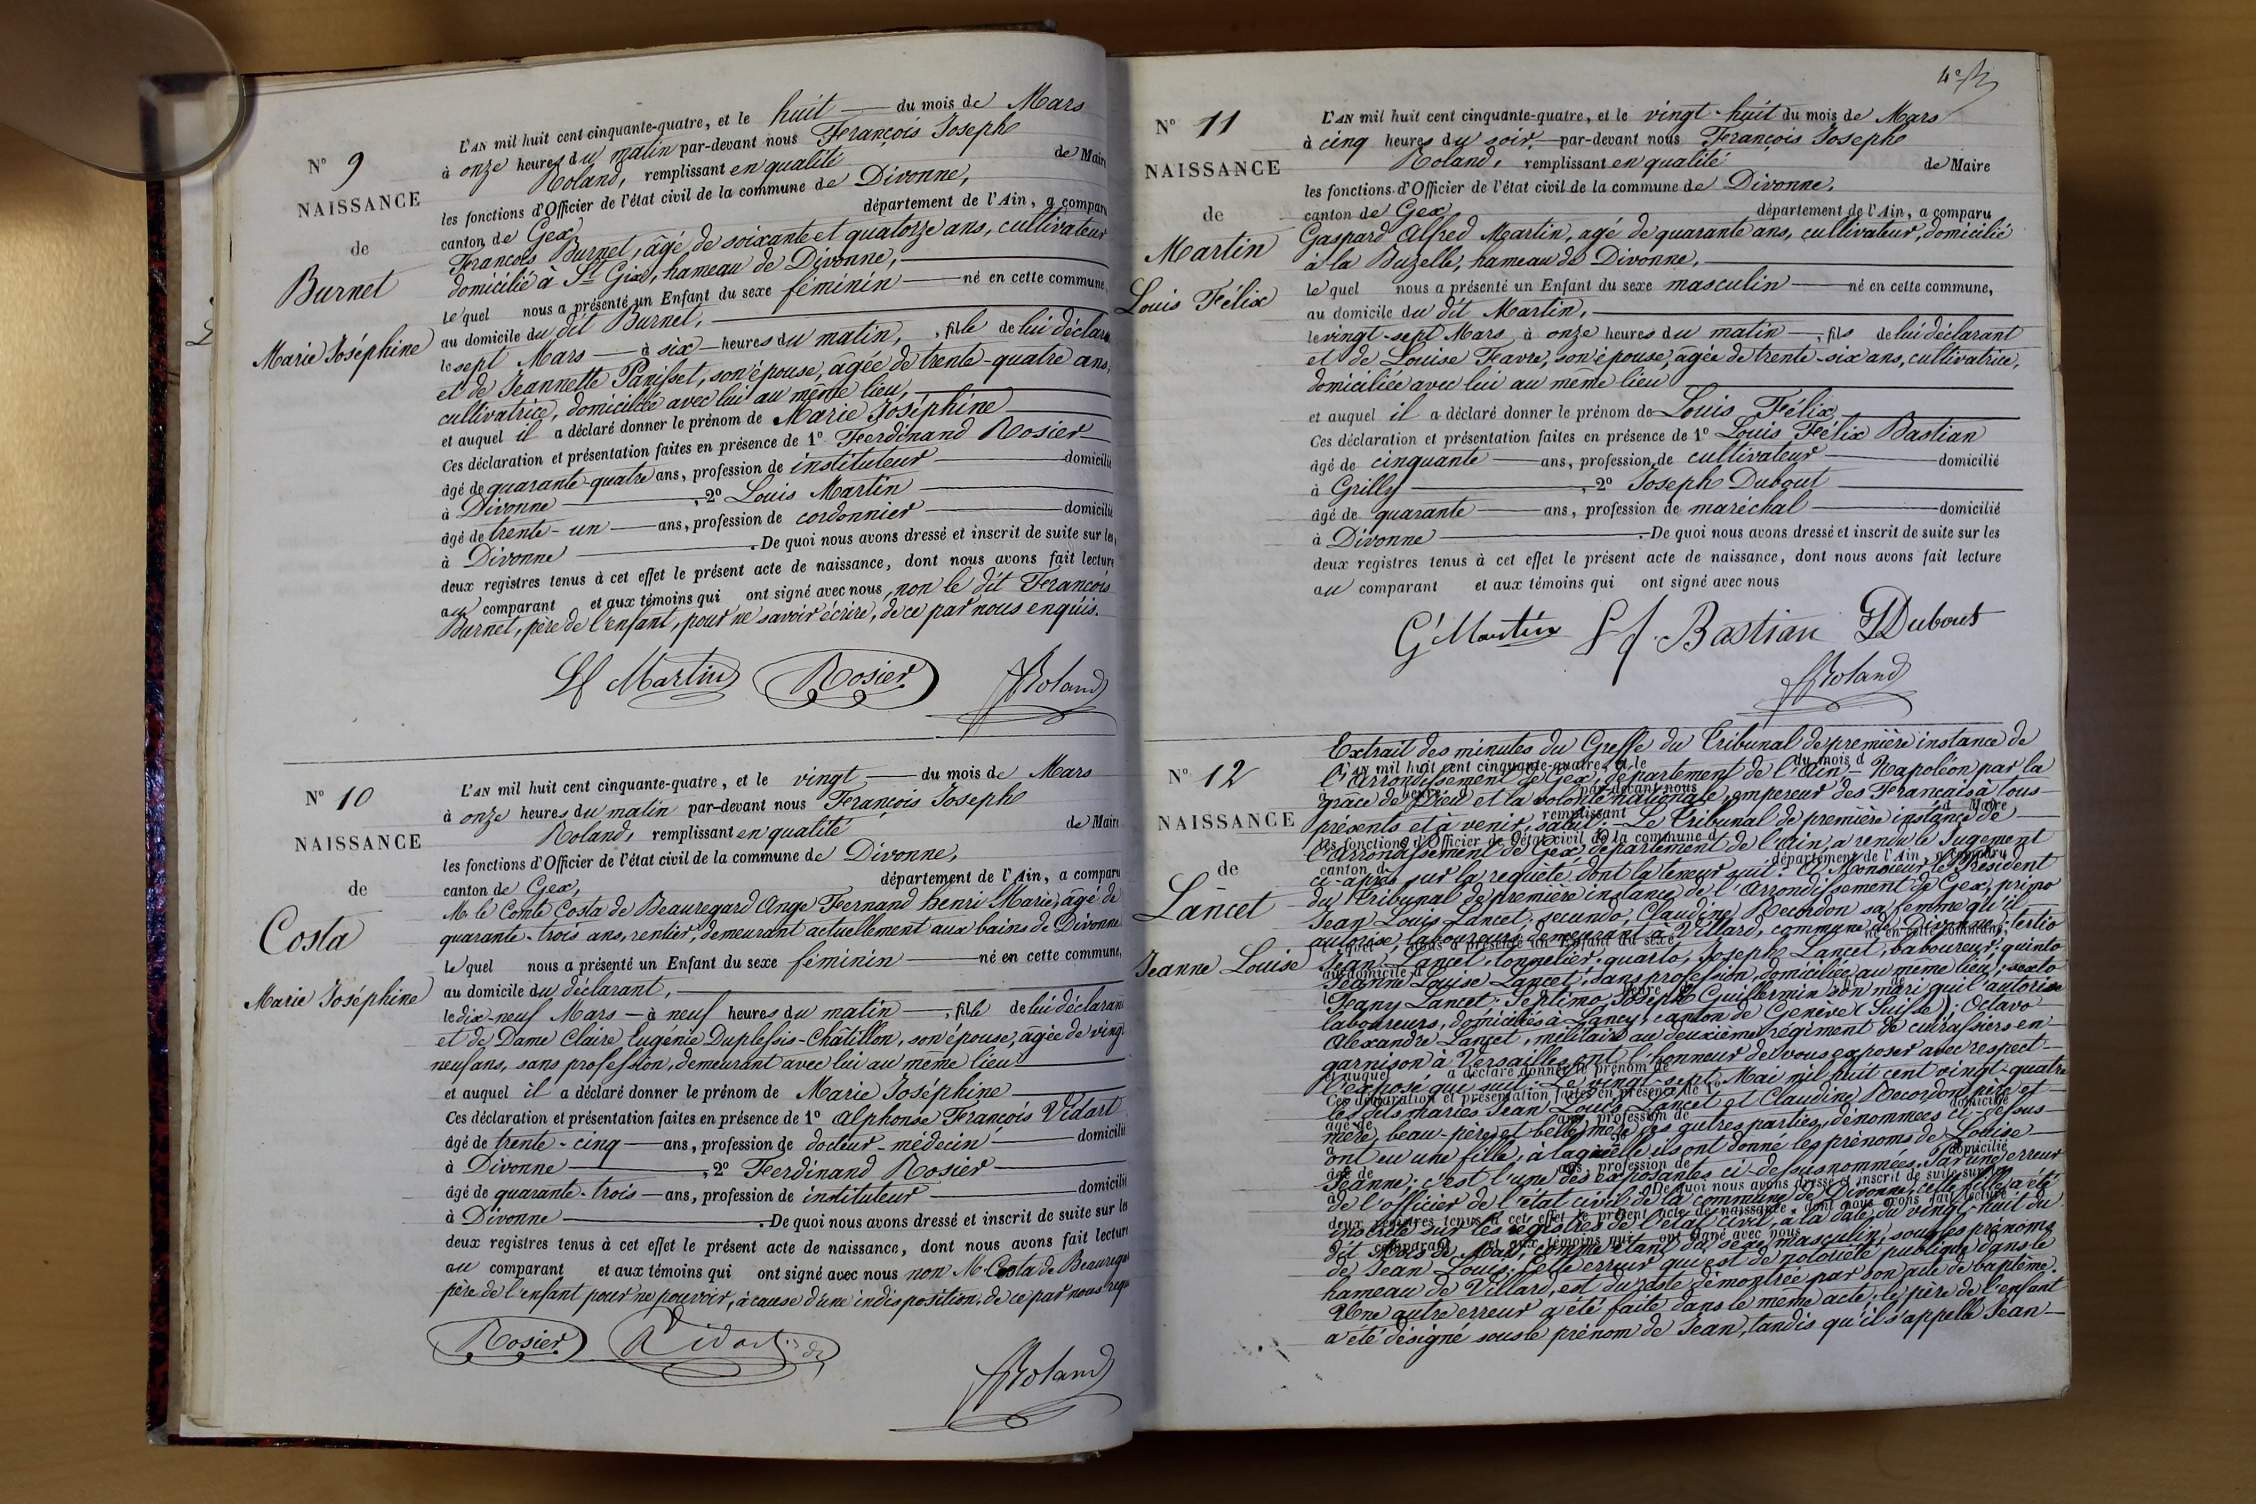 N° 9
NAISSANCE
de
Burnet
Marie Joséphine
L'AN mil huit cent cinquante-quatre, et le huit du mois de Mars
à onze heures du matin par-devant nous François Joseph
Roland, remplissant en qualité de Maire
les fonctions d'Officier de l'état civil de la commune de Divonne,
canton de Gex, département de l'Ain, a comparu
François Burnet, âgé de soixante et quatorze ans, cultivateur
domicilié à St Gix, hameau de Divonne,
lequel nous a présenté un Enfant du sexe féminin né en cette commune,
au domicile du dit Burnet,
le sept Mars à six heures du matin, , fille de lui déclara
et de Jeannette Panisset, son épouse, âgée de trente-quatre ans,
cultivatrice, domiciliée avec lui au même lieu,
et auquel il a déclaré donner le prénom de Marie Joséphine
Ces déclaration et présentation faites en présence de 1° Ferdinand Rosier
âgé de quarante-quatre ans, profession de instituteur domicilié
à Divonne , 2° Louis Martin
âgé de trente-un ans, profession de cordonnier domicilié
à Divonne . De quoi nous avons dressé et inscrit de suite sur les
deux registres tenus à cet effet le présent acte de naissance, dont nous avons fait lecture
au comparant et aux témoins qui ont signé avec nous, non le dit François
Burnet, père de l'enfant, pour ne savoir écrire, de ce par nous enquis.
Lf Martin Rosier JfRoland
N° 10
NAISSANCE
de
Costa
Marie Joséphine
L'AN mil huit cent cinquante-quatre, et le vingt du mois de Mars
à onze heures du matin par-devant nous François Joseph
Roland, remplissant en qualité de Maire
les fonctions d'Officier de l'état civil de la commune de Divonne,
canton de Gex, département de l'Ain, a comparu
Mr le Comte Costa de Beauregard Ange Fernand henri Marie, âgé de
quarante-trois ans, rentier, demeurant actuellement aux bains de Divonne
lequel nous a présenté un Enfant du sexe féminin né en cette commune,
au domicile du déclarant,
le dix-neuf Mars à neuf heures du matin , fille de lui déclarant
et de Dame Claire Eugénie Duplessis-Châtillon, son épouse, âgée de vingt
neuf ans, sans profession, demeurant avec lui au même lieu
et auquel il a déclaré donner le prénom de Marie Joséphine
Ces déclaration et présentation faites en présence de 1° Alphonse François Vidart
âgé de trente-cinq ans, profession de docteur-médecin domicilié
à Divonne , 2° Ferdinand Rosier
âgé de quarante-trois ans, profession de instituteur domicilié
à Divonne . De quoi nous avons dressé et inscrit de suite sur les
deux registres tenus à cet effet le présent acte de naissance, dont nous avons fait lecture
au comparant et aux témoins qui ont signé avec nous non Mr Costa de Beaurega
père de l'enfant pour ne pouvoir, à cause d'une indisposition, de ce par nous requ
Rosier Vidart JfRoland
4e
N° 11
NAISSANCE
de
Martin
Louis Félix
L'AN mil huit cent cinquante-quatre, et le vingt-huit du mois de Mars
à cinq heures du soir par-devant nous François Joseph
Roland, remplissant en qualité de Maire
les fonctions d'Officier de l'état civil de la commune de Divonne,
canton de Gex département de l'Ain, a comparu
Gaspard Alfred Martin, agé de quarante ans, cultivateur, domicilié
à la Buzelle, hameau de Divonne,
lequel nous a présenté un Enfant du sexe masculin né en cette commune,
au domicile du dit Martin,
le vingt-sept Mars à onze heures du matin , fils de lui déclarant
et de Louise Favre, son épouse, agée de trente-six ans, cultivatrice,
domiciliée avec lui au même lieu
et auquel il a déclaré donner le prénom de Louis Félix
Ces déclaration et présentation faites en présence de 1° Louis Félix Bastian
âgé de cinquante ans, profession de cultivateur domicilié
à Grilly , 2° Joseph Dubout
âgé de quarante ans, profession de maréchal domicilié
à Divonne . De quoi nous avons dressé et inscrit de suite sur les
deux registres tenus à cet effet le présent acte de naissance, dont nous avons fait lecture
au comparant et aux témoins qui ont signé avec nous
G Martin Lf. Bastian JDubout
JfRoland
N° 12
NAISSANCE
de
Lancet
Jeanne Louise
Extrait des minutes du Greffe du Tribunal de première instance de
l'Arrondissement de Gex, département de l'Ain – Napoléon par la
grâce de Dieu et la volonté nationale, empereur des Français à tous
présents et à venir, salut. – Le Tribunal de première instance de
l'Arrondissement de Gex, département de l'Ain, a rendu le Jugement
ci-après sur la requête dont la teneur suit : A Monsieur le Président
du Tribunal de première instance de l'Arrondissement de Gex, primo
Jean Louis Lancet; secundo, Claudine Recordon sa femme qu'il
autorise, laboureurs, demeurant à Villard, commune de Divonne; tertio
Jean Lancet, tonnelier; quarto, Joseph Lancet, laboureur; quinto
Jeanne Louise Lancet, sans profession, domiciliée au même lieu; sexto
Fany Lancet; Septimo Joseph Guillermin son mari qui l'autorise
laboureurs, domiciliés à Lancy, canton de Genève (Suisse); Octavo
Alexandre Lancet, militaire au deuxième régiment de cuirassiers en
garnison à Versailles, ont l'honneur de vous exposer avec respect
l'exposé qui suit : Le vingt-sept Mai mil huit cent vingt-quatre
les dits mariés Jean Louis Lancet et Claudine Recordon, père et
mère, beau-père et belle-mère des autres parties, dénommées ci-dessus
ont eu une fille, à laquelle ils ont donné les prénoms de Louise
Jeanne; c'est l'une des exposantes ci-dessus nommées. Par une erreur
de l'officier de l'état civil de la commune de Divonne, cette fille a été
inscrite sur les registres de l'état civil, à la date du vingt-huit du
dit mois de Mai, comme étant du sexe masculin, sous les prénoms
de Jean Louis. Cette erreur qui est de notoriété publique dans le
hameau de Villard, est du reste démontrée par son acte de baptême.
Une autre erreur a été faite dans le même acte; le père de l'enfant
a été désigné sous le prénom de Jean, tandis qu'il s'appelle Jean